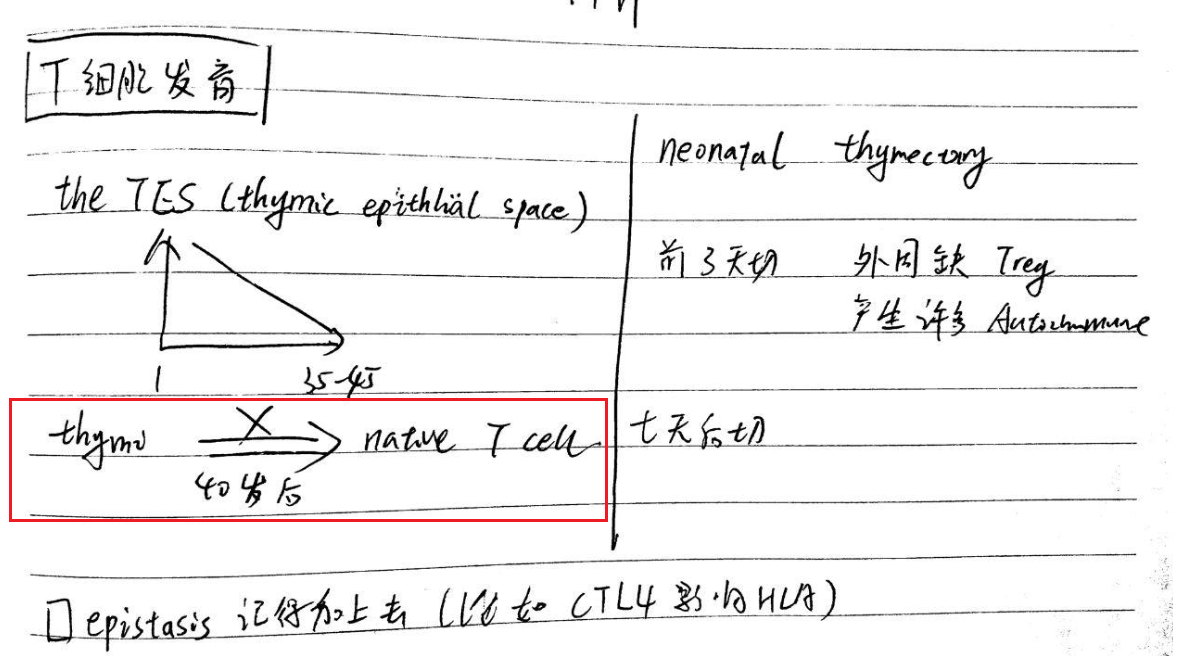 T细胞发育
the TES (thymic epithlial space)
1 35-45
thymo X native T cell
40岁后
neonatal thymectomy
前3天切 外周缺 Treg
产生许多 Autoimmune
七天后切
epistasis 记得加上去 ( CTL4 影响HLA)